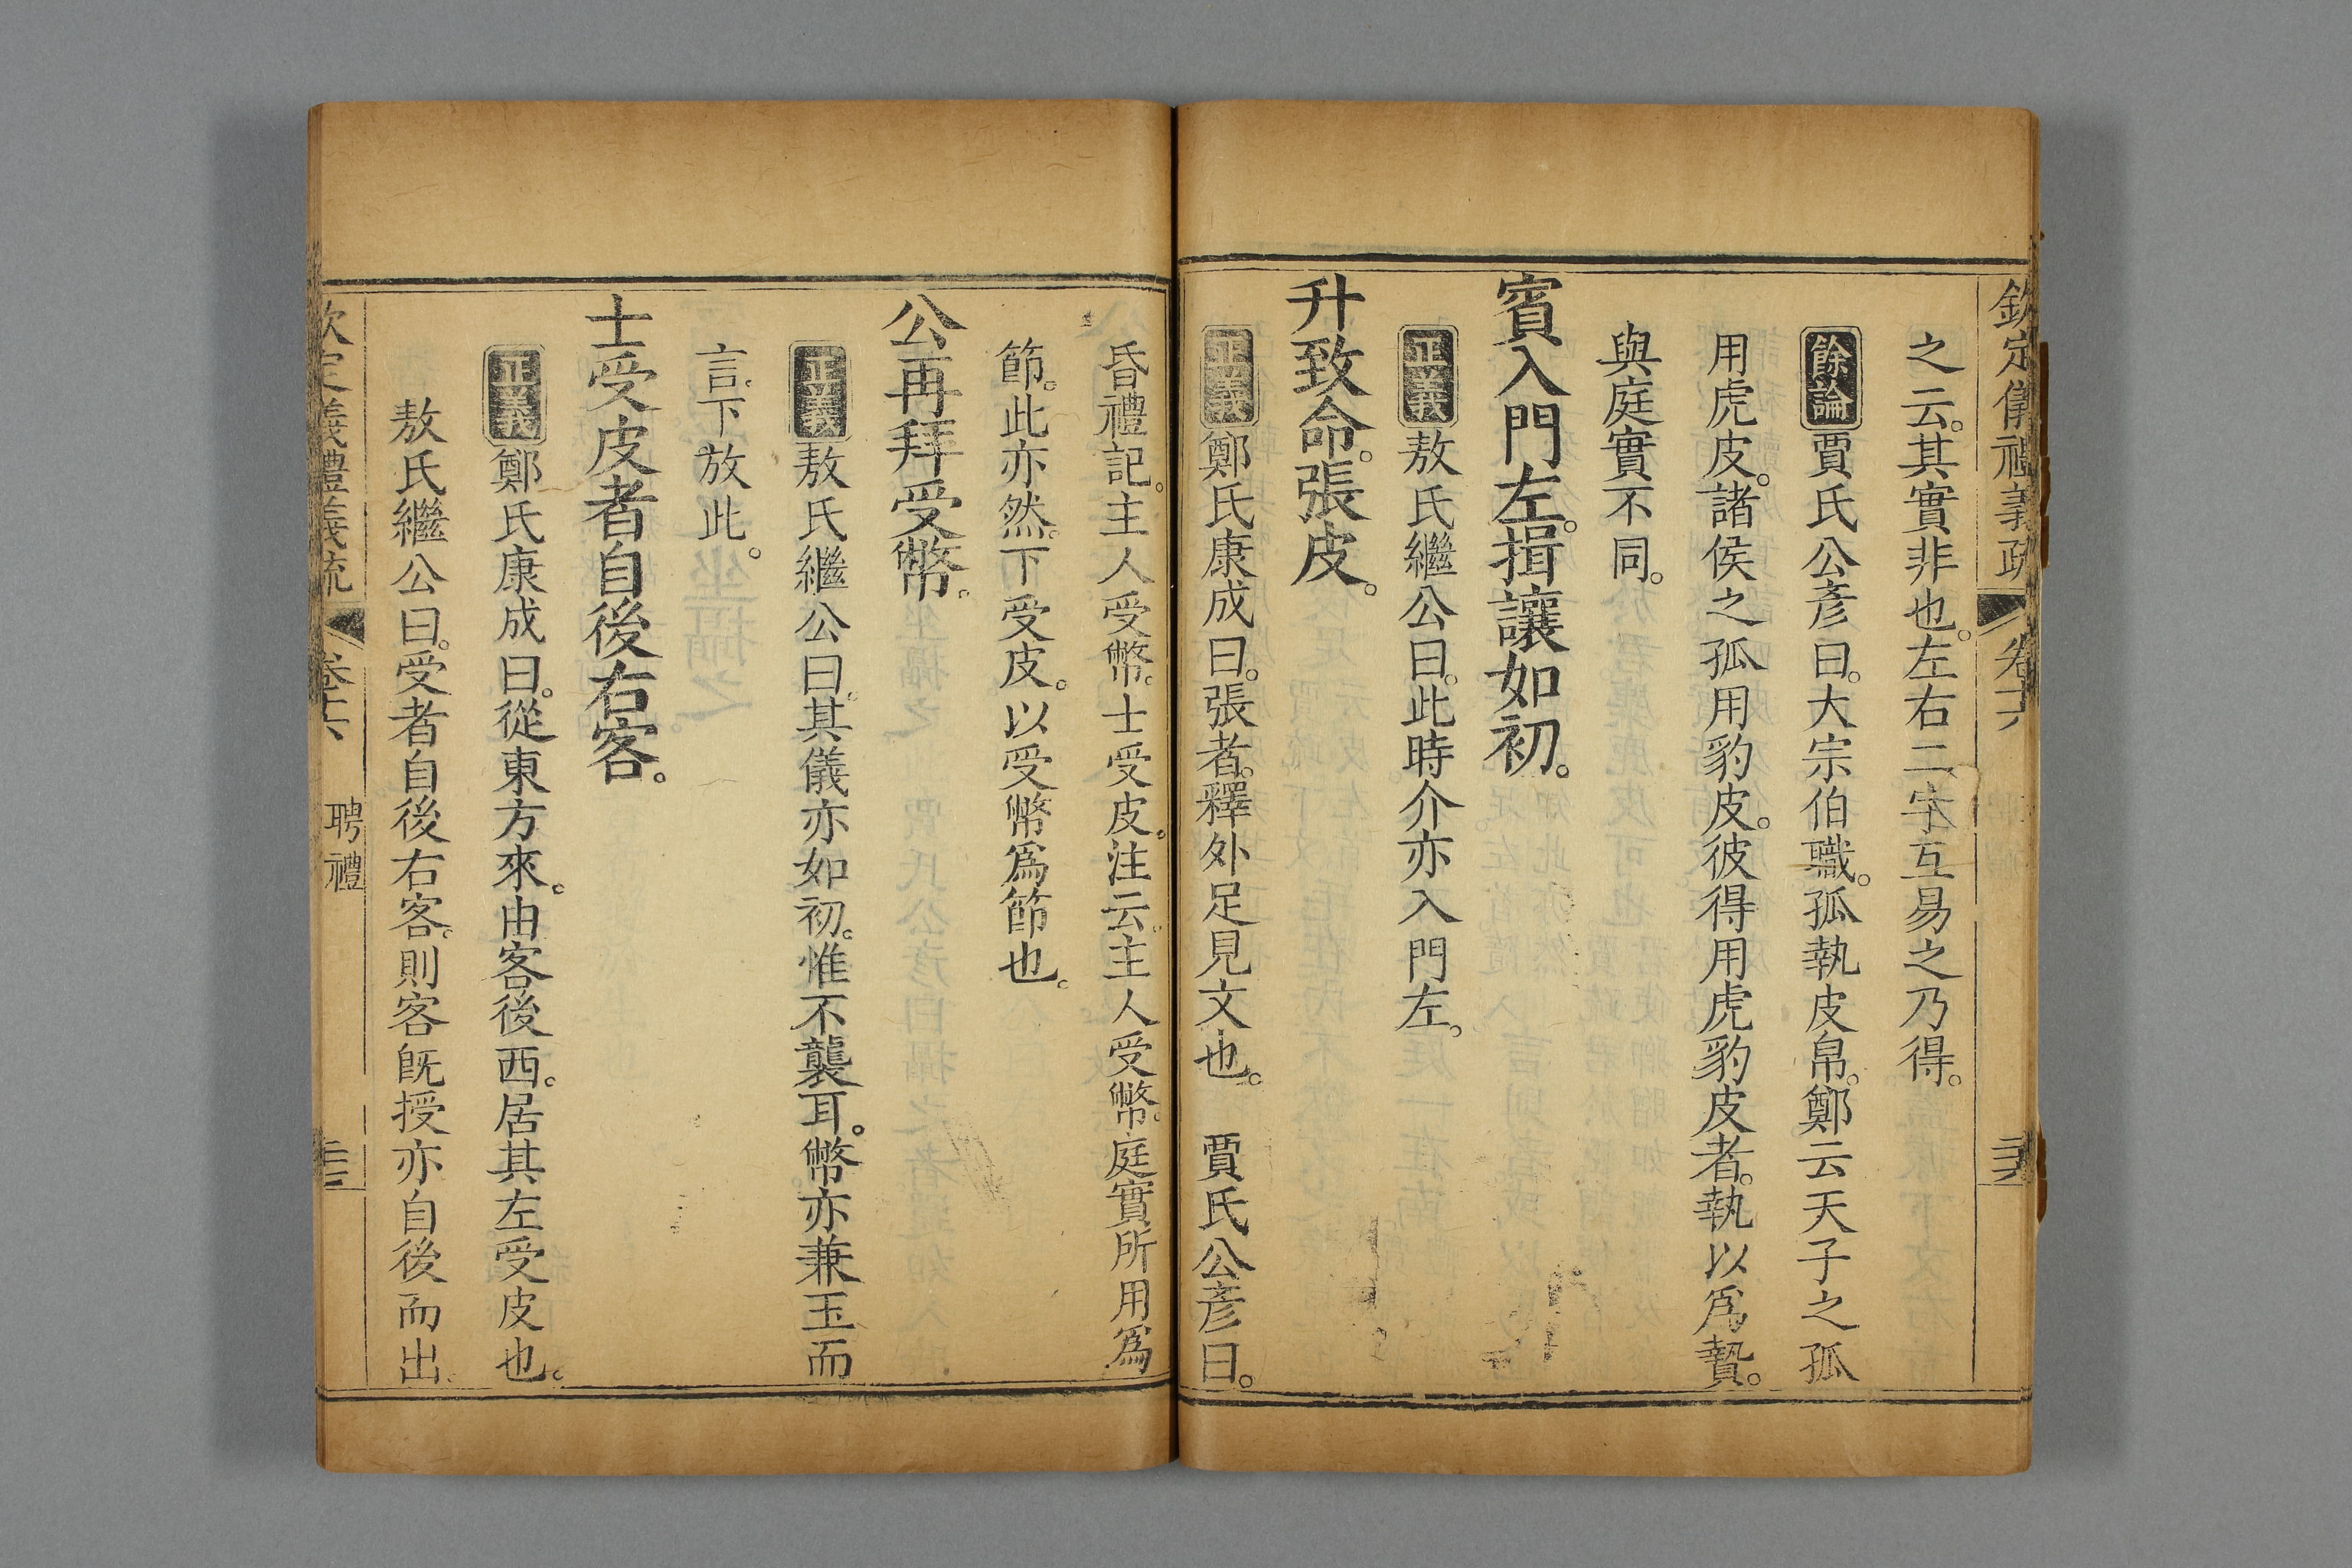 欽定儀禮義疏 卷十六
之云。其實非也。左右二字互易之乃得。
餘論 賈氏公彥曰。大宗伯職。孤執皮帛。鄭云天子之孤
用虎皮。諸侯之孤用豹皮。彼得用虎豹皮者。執以爲贄。
與庭實不同。
賓入門左。揖讓如初。
正義 敖氏繼公曰。此時介亦入門左。
升致命。張皮。
正義 鄭氏康成曰。張者。釋外足見文也。 賈氏公彥曰。
昏禮記。主人受幣。士受皮。注云。主人受幣。庭實所用爲
節。此亦然。下受皮。以受幣爲節也。
公再拜受幣。
正義 敖氏繼公曰。其儀亦如初。惟不襲耳。幣亦兼玉而
言。下放此。
士受皮者自後右客。
正義 鄭氏康成曰。從東方來。由客後西。居其左受皮也。
敖氏繼公曰。受者自後右客。則客旣授亦自後而出。
欽定儀禮義疏 卷十六 聘禮